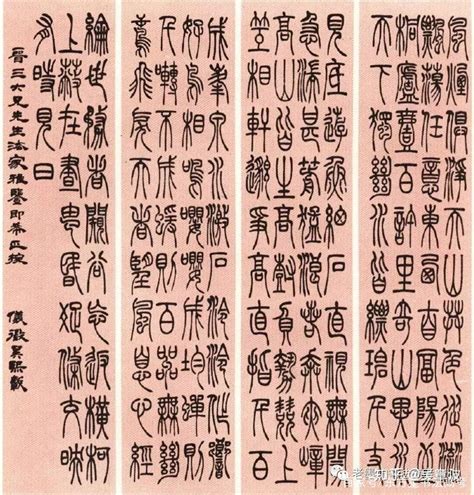 風煙俱淨天山共色從流
飄蕩任意東西自富陽至
桐廬壹百許里奇山異水
天下獨絕水皆縹碧千丈
見底游魚細石直視無
急湍甚箭猛浪若奔夾嶂
高山皆生寒樹負勢競上
互相軒邈爭高直指千百
成峯泉水激石泠泠作響
好鳥相鳴嚶嚶成均蟬則
千轉不窮猨則百叫無絕
鳶飛戾天者望峯息心經
綸世務者闚谷忘返橫柯
上蔽在晝猶昏疏條交映
有時見日
晉三六兄先生法家雅鑒即希正捥
儀徵吳熙載